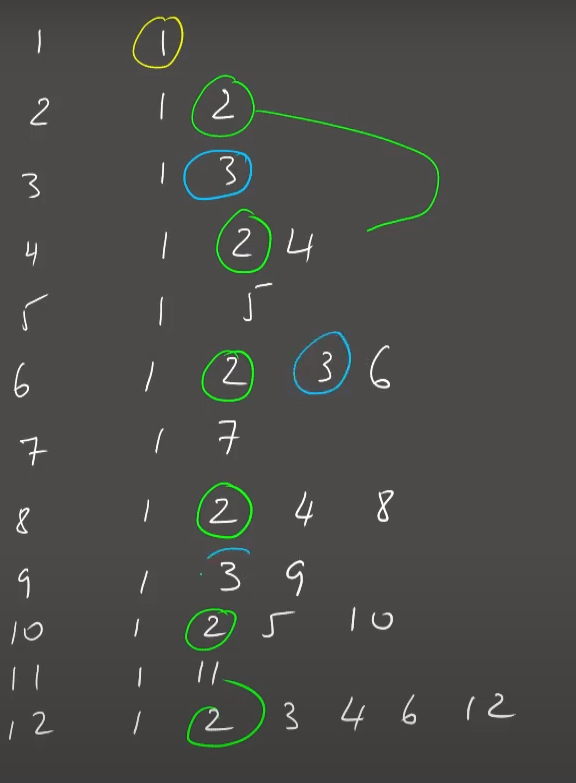 1 1
2 1 2
3 1 3
4 1 2 4
5 1 5
6 1 2 3 6
7 1 7
8 1 2 4 8
9 1 3 9
10 1 2 5 10
11 1 11
12 1 2 3 4 6 12